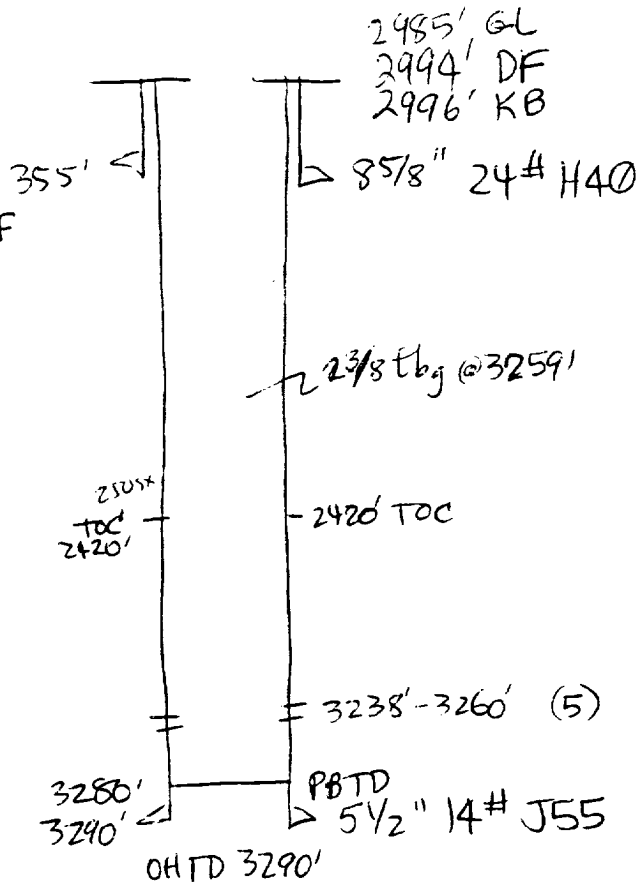 2985' GL
2994' DF
2996' KB
355'
8 5/8" 24# H40
F
2 3/8 tbg @ 3259'
250sx
TOC
2420'
2420' TOC
3238'-3260' (5)
3280'
PBTD
3290'
5 1/2" 14# J55
OHTD 3290'